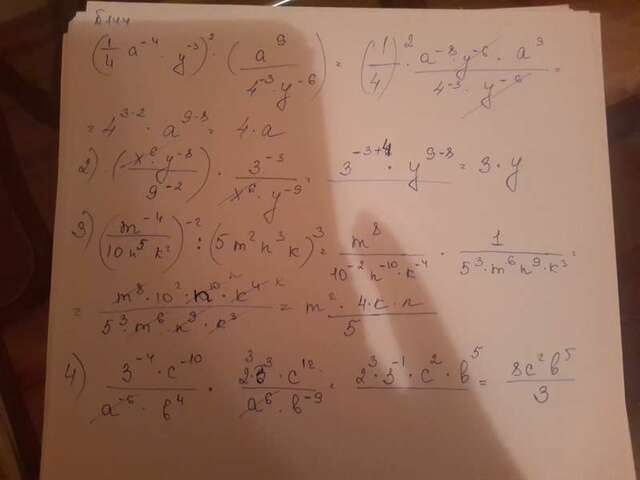 Б144
(1/4 a⁻⁴ · y⁻³)² · (a⁹ / 4⁻³ · y⁻⁶) = (1/4)² · a⁻⁸ · y⁻⁶ · a⁹ / 4⁻³ · y⁻⁶ =
= 4³⁻² · a⁹⁻⁸ = 4 · a
2) (-x⁶ · y⁻⁸ / 9⁻²) · 3⁻³ / x⁶ · y⁻⁹ = 3⁻³⁺⁴ · y⁹⁻⁸ = 3 · y
3) (m⁻⁴ / 10 n⁵ k²)⁻² : (5 m² n³ k)³ = m⁸ / 10⁻² n⁻¹⁰ · k⁻⁴ · 1 / 5³ · m⁶ n⁹ · k³ =
= m⁸ · 10² · n¹⁰ · k⁴ / 5³ · m⁶ · n⁹ · k³ = m² · 4 · k · n / 5
4) 3⁻⁴ · c⁻¹⁰ / a⁻⁶ · b⁴ · 2³ 3³ · c¹² / a⁶ · b⁻⁹ = 2³ · 3⁻¹ · c² · b⁵ = 8c² b⁵ / 3